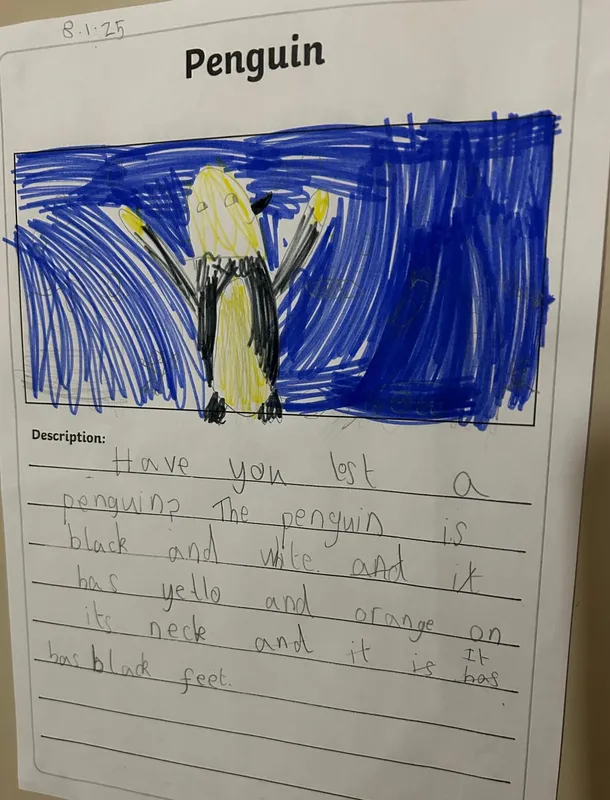 8.1.25
Penguin
Description:
Have you lost a
penguin? The penguin is
black and wite. and it
has yello and orange on
its neck and it is It has
has black feet.